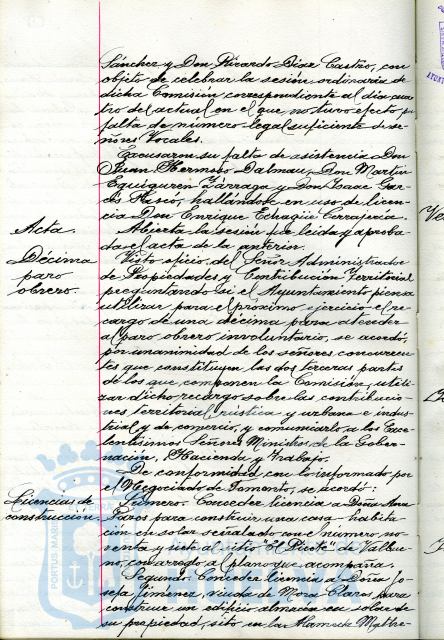 Sánchez y Don Ricardo Díaz Castro, con
objeto de celebrar la sesión ordinaria de
dicha Comisión, correspondiente al día cua
tro del actual en el que no tuvo efecto por
falta de número legal suficiente de se-
ñores Vocales.
Excusaron su falta de asistencia Don
Juan Hermoso Dalmau, Don Martín
Eguiguren Zárraga y Don Isaac Gar-
cés Hario, hallándose en uso de licen-
cia Don Enrique Echagüe Carrajería.
Acta.
Abierta la sesión fue leída y aproba-
da el acta de la anterior.
Décima
paro
obrero.
Visto oficio del Señor Administrador
de Propiedades y Contribución Territorial
preguntando si el Ayuntamiento piensa
utilizar para el próximo ejercicio el re-
cargo de una décima para atender
al paro obrero involuntario, se acordó,
por unanimidad de los señores concurren
tes que constituyen las dos terceras partes
de los que componen la Comisión, utili-
zar dicho recargo sobre las contribucio-
nes territorial, rústica y urbana e indus-
trial y de comercio, y comunicarlo a los Exce-
lentísimos Señores Ministros de la Gober-
nación, Hacienda y Trabajo.
De conformidad con lo informado por
el Negociado de Fomento, se acordó:
Licencias de
construcción.
Primero. Conceder licencia a Doña
para construir una casa-habita
ción en solar señalado con el número no-
venta y seis al sitio "El Picote" de Valbue-
no, con arreglo al plano que acompaña.
Segundo. Conceder licencia a Doña Jo-
sefa Jiménez, viuda de Mora Claros para
construir un edificio almacén en solar de
su propiedad, sito en la Alameda
PORTUS MARIS